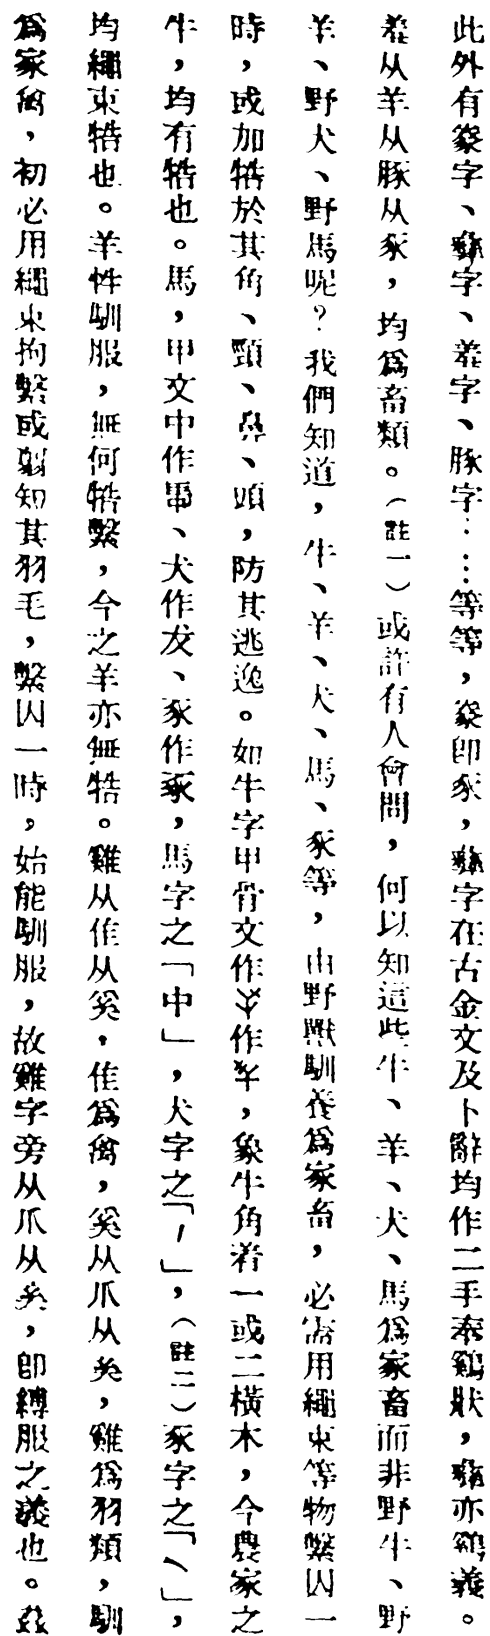 此外有豢字、彝字、羞字、豚字……等等，豢即豕，彝字在古金文及卜辭均作二手奉鷄狀，彝亦鷄義。
羞从羊从豚从豕，均爲畜類。（註一）或許有人會問，何以知這些牛、羊、犬、馬爲家畜而非野牛、野
羊、野犬、野馬呢？我們知道，牛、羊、犬、馬、豕等，由野獸馴養爲家畜，必需用繩束等物繫囚一
時，或加牿於其角、頸、鼻、頭，防其逃逸。如牛字甲骨文作作，象牛角着一或二橫木，今農家之
牛，均有牿也。馬，甲文中作、犬作犮、豕作豖，馬字之「中」，犬字之「丿」，（註二）豕字之「乀」，
均繩束牿也。羊性馴服，無何牿繫，今之羊亦無牿。雞从隹从奚，隹爲禽，奚从爪从糸，雞爲羽類，馴
爲家禽，初必用繩束拘繫或剪知其羽毛，繫囚一時，始能馴服，故雞字旁从爪从糸，即縛服之義也。茲